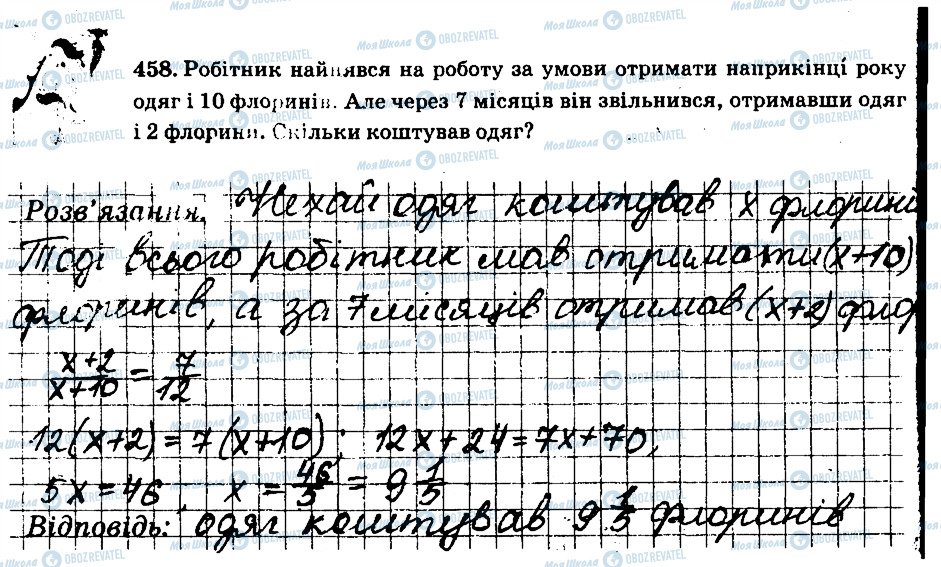 458. Робітник найнявся на роботу за умови отримати наприкінці року
одяг і 10 флоринів. Але через 7 місяців він звільнився, отримавши одяг
і 2 флорини. Скільки коштував одяг?
Розв'язання. Нехай одяг коштував x флорині
Тоді всього робітник мав отримати (x+10)
флоринів, а за 7 місяців отримав (x+2) флор
x+2/x+10 = 7/12
12(x+2) = 7(x+10); 12x+24=7x+70,
5x=46 x = 46/5 = 9 1/5
Відповідь: одяг коштував 9 1/5 флоринів